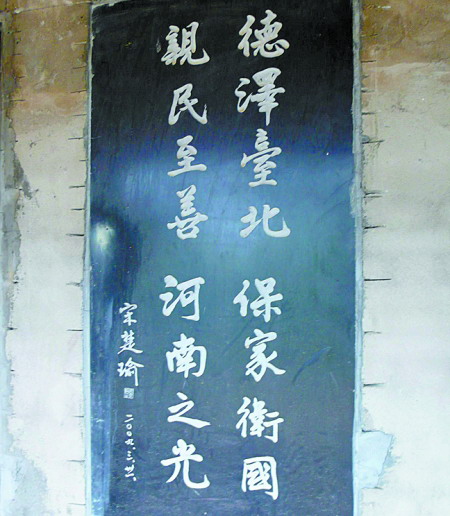 德澤臺北 保家衛國
親民至善 河南之光
宋楚瑜
二〇〇九.三.廿一.